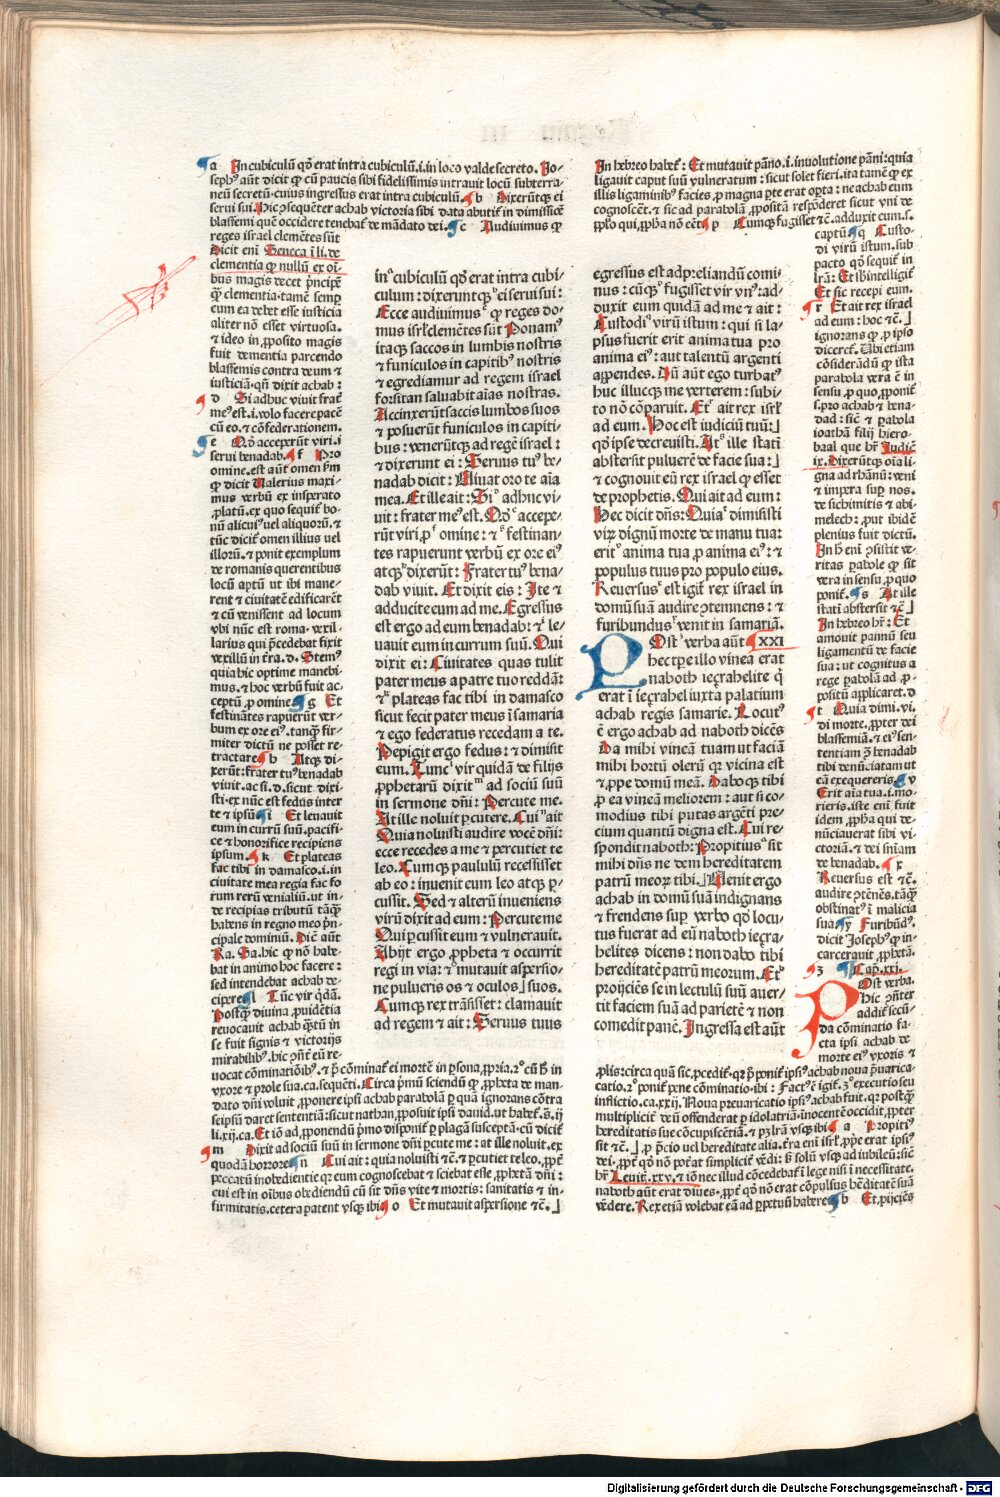 a In cubiculū qđ erat intra cubiculū.i.in loco valde secreto. Jo-
sephꝰ aūt dicit ꝙ cū paucis sibi fidelissimis intrauit locū subterra-
neū secretū cuius ingressus erat intra cubiculū. b Dixerūtqꝫ ei
serui sui. Hic ꝯsequēter achab victoria sibi data abutit̄ in dimissiōe
blasfemi quē occidere tenebat̄ de mādato dei. c Audiuimus ꝙ
reges israel clemētes sūt
Dicit eni Seneca ī li. de
clementia ꝙ nullū ex oī-
bus magis decet prīncipē
ꝙ clementia. tamē semꝑ
cum ea debet esse iusticia
aliter nō esset virtuosa.
⁊ ideo in ꝓposito magis
fuit dementia parcendo
blasfemis contra deum ⁊
iusticiā. qn̄ dixit achab:
d Si adhuc viuit frater
meꝰ est.i.volo facere pacē
cū eo. ⁊ cōfederationem.
e Qđ acceperūt viri.i.
serui benadab. f Pro
omine. est aūt omen ẜm
ꝙ dicit Valerius maxi-
mus verbū ex insperato
ꝓlatū. ex quo sequit̄ bo-
nū alicuiꝰ uel aliquorū. ⁊
tūc dicit̄ omen illius vel
illorū. ⁊ ponit exemplum
de romanis querentibus
locū aptū ut ibi mane-
rent ⁊ ciuitatē edificarēt
⁊ cū venissent ad locum
vbi nūc est roma. vexil-
larius qui p̄cedebat fixit
vexillū in t̄ra. d. Stemꝰ
quia hic optime manebi-
mus. ⁊ hoc verbū fuit ac-
ceptū ꝓ omine. g Et
festinātes rapuerūt ver-
bum ex ore eiꝰ. tanqꝫ fir-
miter dictū ne posset re-
tractare. h Atqꝫ di-
xerūt: frater tuꝰ benadab
viuit. ac si. d. sicut dixi-
sti. ex nūc est fedus inter
te ⁊ ipsū. i Et leuauit
eum in currū suū. pacifi-
ce ⁊ honorifice recipiens
ipsum. k Et plateas
fac tibi in damasco.i.in
ciuitate mea regia fac fo
rum rerū venialiū. ut in-
de recipias tributū tāqꝫ
habens in regno meo p̄n-
cipale dominiū. Dicit aūt
Ra. Sa. hic ꝙ nō habe-
bat in animo hoc facere:
sed intendebat achab de-
cipere. l Tūc vir q̇dā.
Postqꝫ diuina ꝓuidētia
reuocauit achab qꝫtū in
se fuit signis ⁊ victorijs
mirabilibꝰ. hic ꝯn̄r eū re-
uocat cōminatiōibꝰ. ⁊ p̄ cōminat̄ ei mortē in ꝑsona ꝓpria. 2º cū ꝑ in
vxore ⁊ prole sua. ca. sequēti. Circa p̄mū sciendū ꝙ ꝓpheta de man-
dato dn̄i voluit ꝓponere ipsi achab parabolā ꝑ quā ignorans cōtra
seipsū daret sententiā: sicut nathan ꝓposuit ipsi dauid. ut habet̄. 2. ij
li. xij. ca. Et iō ad ꝓponendū p̄mo disponit̄ ꝑ plagā susceptā. cū dicit̄
m Dixit ad sociū suū in sermone dn̄i ꝑcute me: at ille noluit. ex
quodā horrore. n Cui ait: quia noluisti ⁊c̄. ⁊ ꝑcutiet te leo. ꝓpt̄
peccatū inobedientie qꝛ eum cognoscebat ⁊ sciebat esse ꝓphetā dn̄i:
cui est in oībus obediendū cū sit dn̄s vite ⁊ mortis: sanitatis ⁊ in-
firmitatis. cetera patent vsqꝫ ibi. o Et mutauit aspersione ⁊c̄.
inᵃ cubiculū qđ erat intra cubi-
culum: dixeruntqꝫᵇ ei serui sui:
Ecce audiuimusᶜ ꝙ reges do-
mus isrl̄ clemētes sūt Ponamꝰ
itaqꝫ saccos in lumbis nostris
⁊ funiculos in capitibꝰ nostris
⁊ egrediamur ad regem israel
forsitan saluabit aīas nostras.
Accinxerūt saccis lumbos suos
⁊ posuerūt funiculos in capiti-
bus: venerūtqꝫ ad regē israel:
⁊ dixerunt ei: Seruus tuꝰ be-
nadab dicit: Viuat oro te aīa
mea. Et ille ait: Siᵈ adhuc vi-
uit: frater meꝰ est. Qđᵉ accepe-
rūt viri ꝓᶠ omine: ⁊ᵍ festinan-
tes rapuerunt verbū ex ore eiꝰ
atqꝫʰ dixerūt: Frater tuꝰ bena-
dab viuit. Et dixit eis: Ite ⁊
adducite eum ad me. Egressus
est ergo ad eum benadab: ⁊ⁱ le-
uauit eum in currum suū. Qui
dixit ei: Ciuitates quas tulit
pater meus a patre tuo reddā:
⁊ᵏ plateas fac tibi in damasco
sicut fecit pater meus ī samaria
⁊ ego federatus recedam a te.
Pepigit ergo fedus: ⁊ dimisit
eum. Tuncˡ vir quidā de filijs
ꝓphetarū dixitᵐ ad sociū suū
in sermone dn̄i: Percute me.
At ille noluit ꝑcutere. Cuiⁿ ait
Quia noluisti audire vocē dn̄i:
ecce recedes a me ⁊ percutiet te
leo. Cumqꝫ paululū recessisset
ab eo: inuenit eum leo atqꝫ ꝑ-
cussit. Sed ⁊ alterū inueniens
virū dixit ad eum: Percute me
Qui ꝑcussit eum ⁊ vulnerauit.
Abijt ergo ꝓpheta ⁊ occurrit
regi in via: ⁊ᵒ mutauit aspersio-
ne pulueris os ⁊ oculos suos.
Cumqꝫ rex trāsisset: clamauit
ad regem ⁊ ait: Seruus tuus
egressus est ad p̄liandū comi-
nus: cūqꝫᵖ fugisset vir vnꝰ: ad-
duxit eum quidā ad me ⁊ ait:
Custodiᑫ virū istum: qui si la-
psus fuerit erit anima tua pro
anima eiꝰ: aut talentū argenti
appendes. Dū aūt ego turbatꝰ
huc illucqꝫ me verterem: subi-
to nō cōparuit. Etʳ ait rex isrl̄
ad eum: Hoc est iudiciū tuū:
qđ ipse decreuisti. Atˢ ille statī
abstersit puluerē de facie sua:
⁊ cognouit eū rex israel ꝙ esset
de prophetis. Qui ait ad eum:
Hec dicit dn̄s: Quiaᵗ dimisisti
virꝫ dignū morte de manu tua:
eritᵛ anima tua ꝓ anima eiꝰ: ⁊
populus tuus pro populo eius.
Reuersusˣ est igit̄ rex israel in
domū suā audire ꝯtemnens: ⁊
furibundusʸ venit in samariā.
POstᶻ verba aūt XXI
hec tꝑe illo vinea erat
naboth ieẓrahelite q̄
erat ī ieẓrahel iuxta palatium
achab regis samarie. Locutꝰ
ē ergo achab ad naboth dicēs
Da mihi vineā tuam ut faciā
mihi hortū olerū qꝛ vicina est
⁊ ꝓpe domū meā. Daboqꝫ tibi
ꝓ ea vineā meliorem: aut si co-
modius tibi putas argēti pre-
cium quantū digna est. Cui re-
spondit naboth: Propitiusᵃ sit
mihi dn̄s ne dem hereditatem
patrū meorꝫ tibi. Venit ergo
achab in domū suā indignans
⁊ frendens suꝑ verbo qđ locu-
tus fuerat ad eū naboth ieẓra-
helites dicens: non dabo tibi
hereditatē patrū meorum. Etᵇ
proijciēs se in lectulū suū auer-
tit faciem suā ad parietē ⁊ non
comedit panē. Ingressa est aūt
In hebreo habet̄: Et mutauit pāno.i.inuolutione pāni: quia
ligauit caput suū vulneratum: sicut solet fieri. ita tamē ꝙ ex
illis ligaminibꝰ facies ꝓ magna ꝑte erat opta: ne achab eum
cognosceret. ⁊ sic ad parabolā ꝓpositā respōderet sicut vni de
pp̄lo qui ꝓpha nō eēt. p Cumqꝫ fugisset ⁊c̄. adduxit eum.s.
captū. q Custo-
di virū istum. sub
pacto qđ sequit̄ in
lrā: Et sbintelligit̄
Et sic recepi eum.
r Et ait rex israel
ad eum: hoc ⁊c̄.
ignorans ꝙ ꝓ ipso
diceret̄. Ubi etiam
cōsiderādū ꝙ ista
parabola vera ē in
sensu ꝓ quo ꝓponit̄
s. pro achab ⁊ bena-
dad: sic ⁊ ꝑabola
ioathā filij hiero-
baal que hr̄ Judic̄
ix. Dixerūtqꝫ oīa li-
gna ad rhānū: veni
⁊ impera suꝑ nos.
de sichimitis ⁊ abi-
melech: ꝓut ibidē
plenius fuit dictū.
In h̄ eni ꝯsistit ve-
ritas ꝑabole ꝙ sit
vera in sensu ꝓ quo
ponit̄. s At ille
statī abstersit ⁊c̄.
In hebreo hr̄: Et
amouit pannū seu
ligamentū de facie
sua: ut cognitus a
rege ꝑabolā ad ꝓ-
positū applicaret. d
t Quia dimi. vi.
di morte. ꝓpter dei
blasfemiā. ⁊ eiꝰ sen-
tentiam ꝯ̄ benadab
tibi denūciatam ut
eā exequereris. v
Erit aīa tua.i.mo-
rieris. iste eni fuit
idem ꝓpha qui de-
nūciauerat sibi vi-
ctoriā. ⁊ dei sn̄iam
de benadab. x
Reuersus est ⁊c̄.
audire ꝯtēnēs. tāqꝫ
obstinatꝰ ī malicia
sua. y Furibūdꝰ.
dicit Josephꝰ ꝙ in-
carcerauit ꝓphetā.
z Cap. xxi.
POst verba.
Hic ꝯn̄ter
addit̄ secū-
da cōminatio fa-
cta ipsi achab de
morte eiꝰ vxoris ⁊
ꝓlis: circa quā sic ꝓcedit̄. qꝛ p̄ ponit̄ ipsiꝰ achab noua p̄uarica-
catio. 2º ponit̄ pene cōminatio. ibi: Factꝰ ē igit̄. 3º executio seu
inflictio. ca. xxij. Noua preuaricatio ipsiꝰ achab fuit. qꝛ postqꝫ
multiplicit̄ deū offenderat ꝑ idolatriā. inocentē occidit ꝓpter
hereditatis sue cōcupiscētiā. ⁊ pꝫ lrā vsqꝫ ibi. a Propitiꝰ
sit ⁊c̄. ꝓ p̄cio uel hereditate alia. t̄ra eni isrl̄ ꝓpe erat ipsiꝰ
dei. ꝓpt̄ qđ nō poterat simplicit̄ vēdi: ẜ solū vsqꝫ ad iubileū: sic
hr̄ Leuit̄. xxv. ⁊ iō nec illud cōcedebat̄ ī lege nisi ī necessitate.
naboth aūt erat diues. ꝓpt̄ qđ nō erat cōpulsus hēditatē suā
vēdere. Rex etiā volebat eā ad ꝑpetuū habere. b Et ꝓijciēs
Digitalisierung gefördert durch die Deutsche Forschungsgemeinschaft - DFG